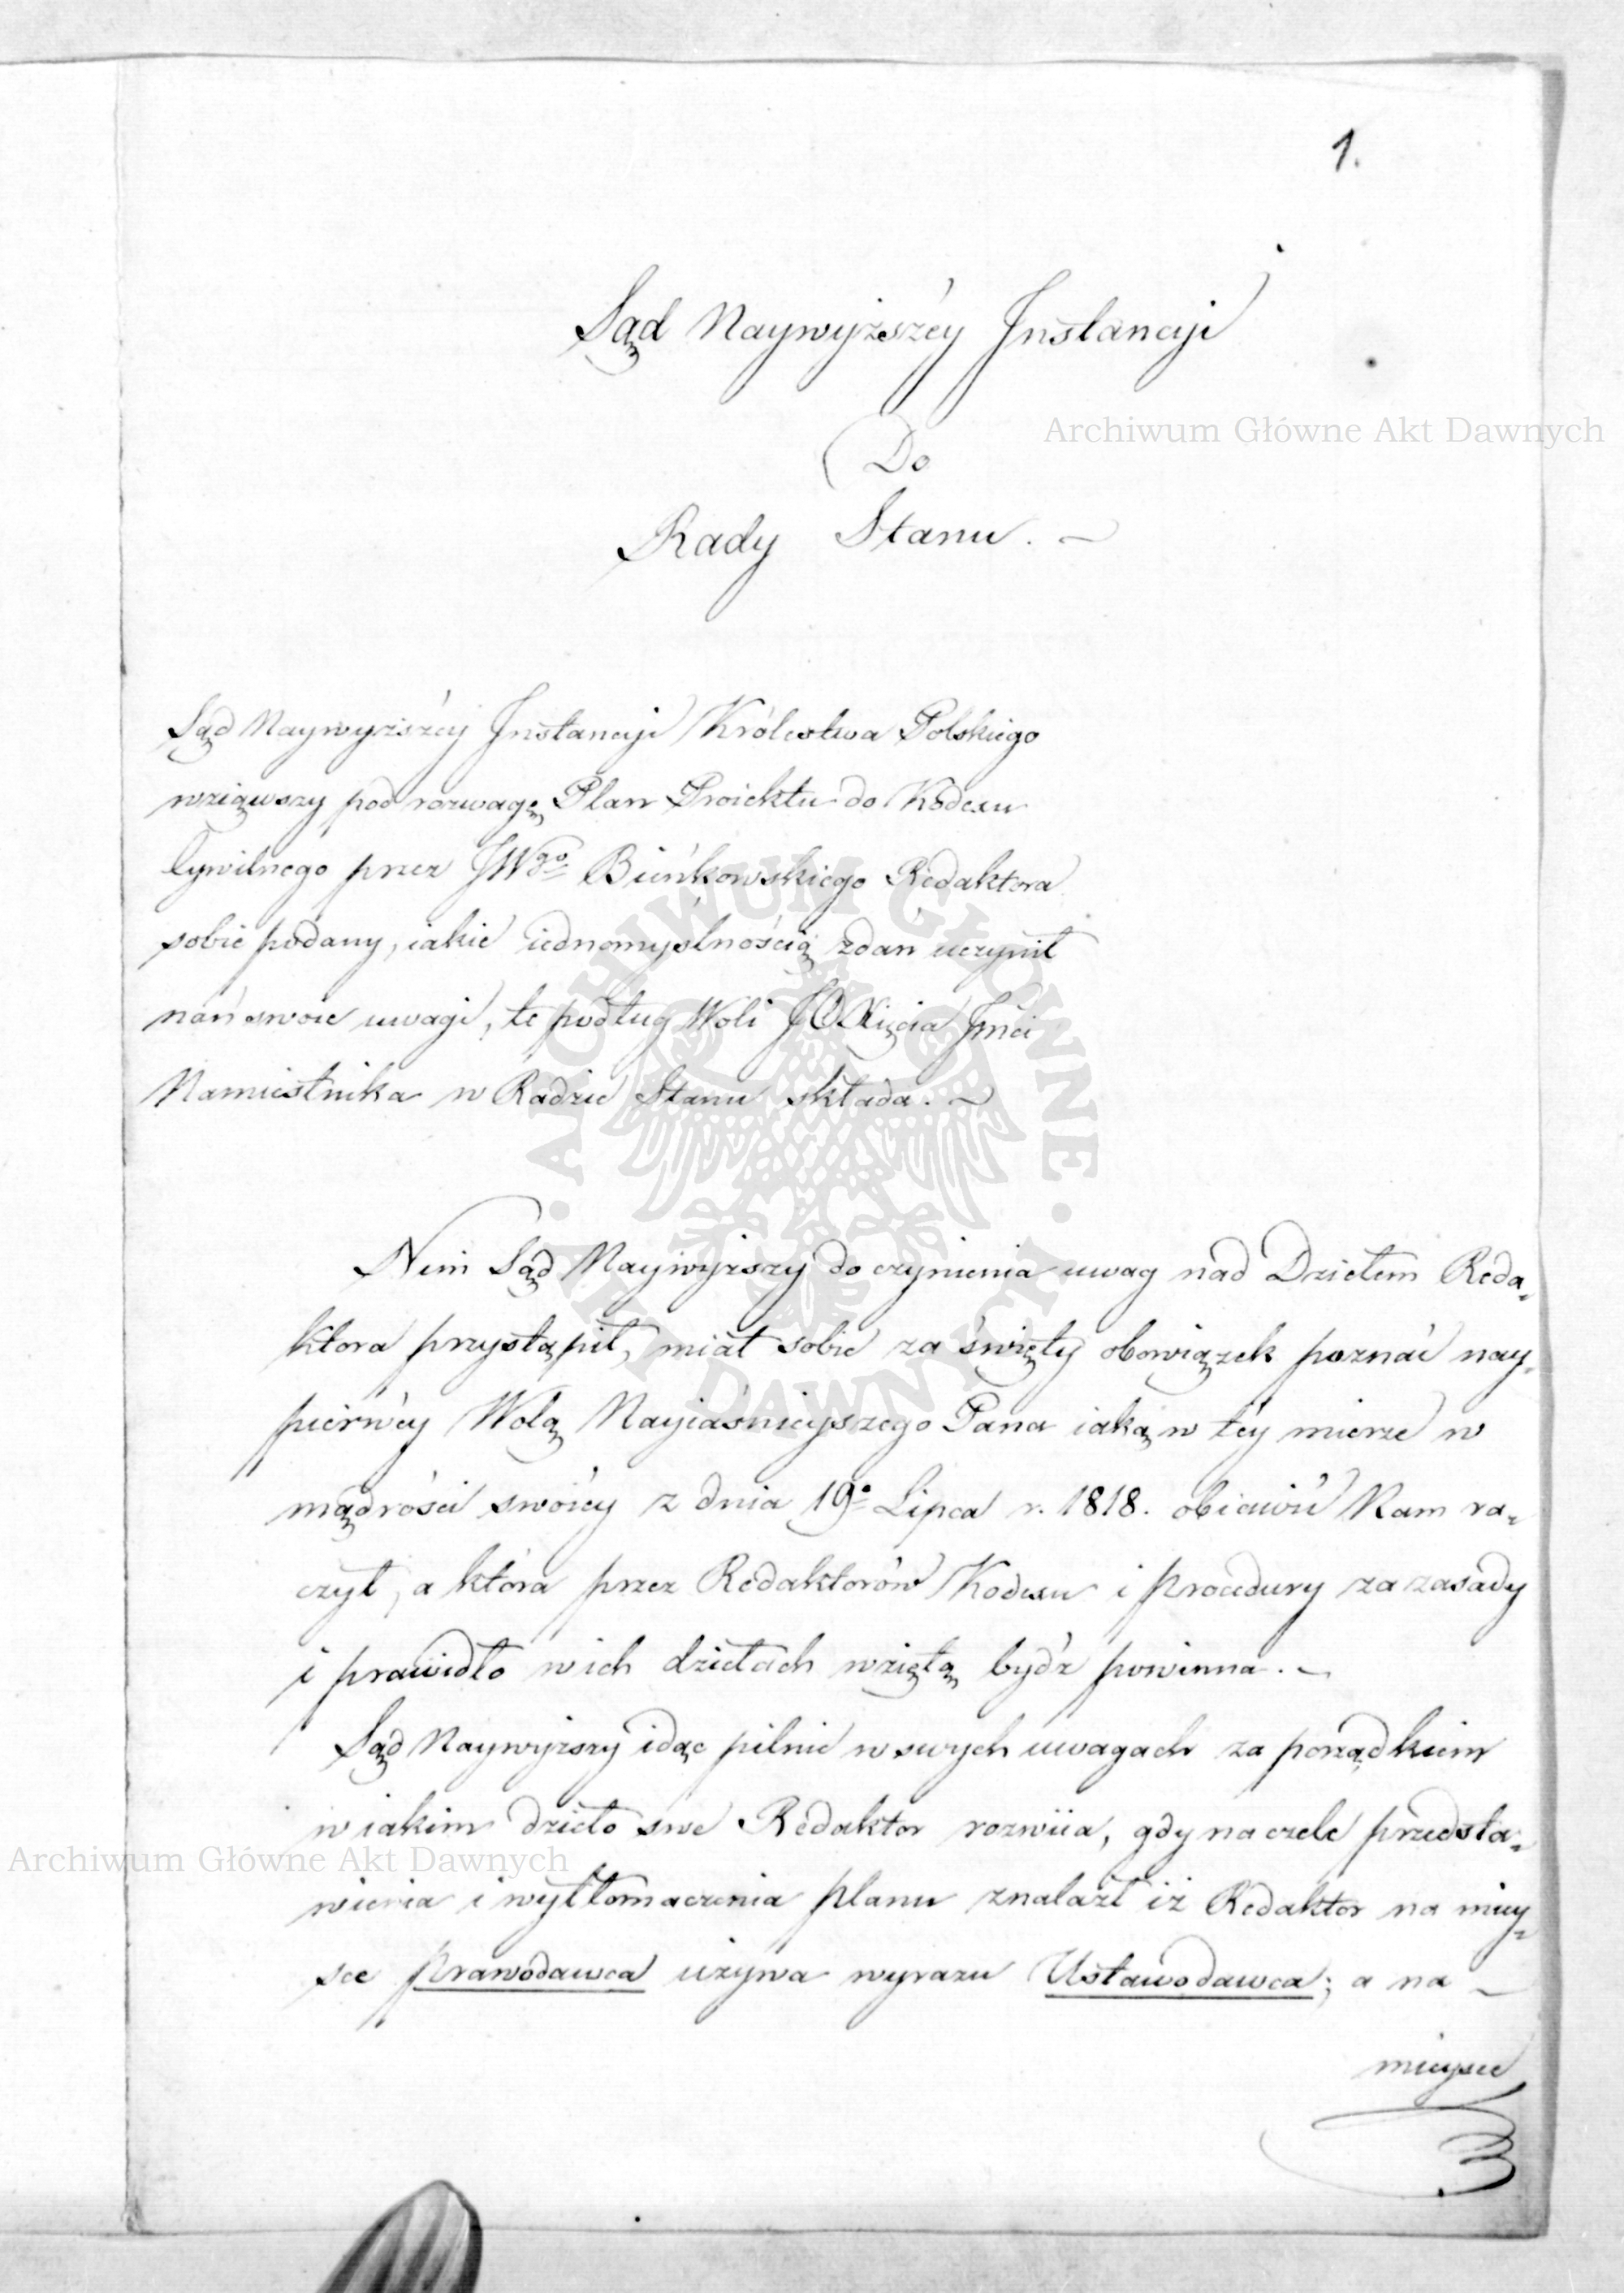 1.
Sąd Naywyższéy Instancyi
Archiwum Główne Akt Dawnych
Do
Rady Stanu. ~
Sąd Naywyższéy Instancyi Królestwa Polskiego
wziąwszy pod rozwagę Plan Proiektu do Kodexu
Cywilnego przez JWgo Bieńkowskiego Redaktora
sobie podany, iakie iednomyślnością zdań uczynił
nań swoie uwagi, te podług Woli JO Xięcia Jmći
Namiestnika w Radzie Stanu składa. ~
ARCHIWUM GŁÓWNE · AKT DAWNYCH ·
Nim Sąd Naywyższy do czynienia uwag nad Dziełem Reda=
ktora przystąpił, miał sobie za święty obowiązek poznać nay=
pierwéy Wolą Nayiaśnieyszego Pana iaką w téy mierze w
mądrości swoiéy z dnia 19o Lipca r. 1818. obiawić Nam ra=
czył, a która przez Redaktorów Kodexu i Procedury za zasady
i prawidło w ich dziełach wziętą bydź powinna. ~
Sąd Naywyższy idąc pilnie w swych uwagach za porządkiem
w iakim dzieło swe Redaktor rozwiia, gdy na czele przedsta=
Archiwum Główne Akt Dawnych
wienia i wytłomaczenia planu znalazł iż Redaktor na miey=
sce Prawodawca używa wyrazu Ustawodawca; a na ~
mieysce